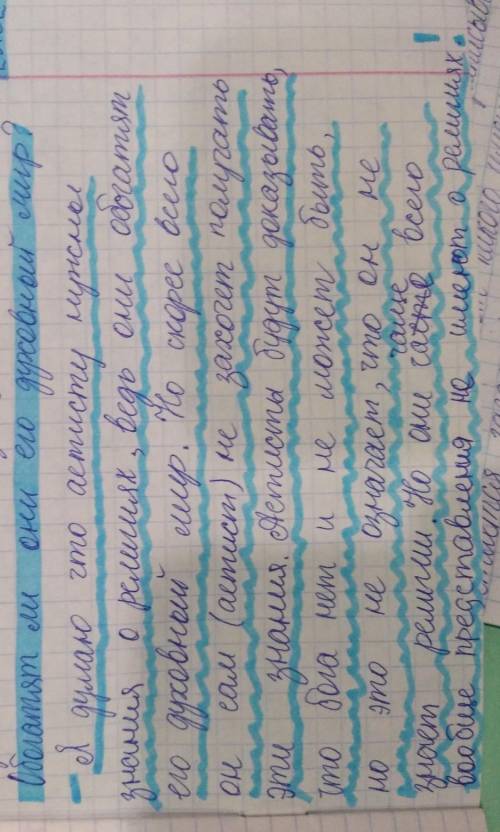 обогатят ли они его духовный мир?
- Я думаю что аетисту нужны
знания о религиях, ведь они обогатят
его духовный мир. Но скорее всего
он сам (аетист) не захочит получать
эти знания. Аетисты будут доказывать,
что бога нет и не может быть,
но это не означает, что он не
знает религии. Но они чаще всего
вообще представления не имеют о религиях.